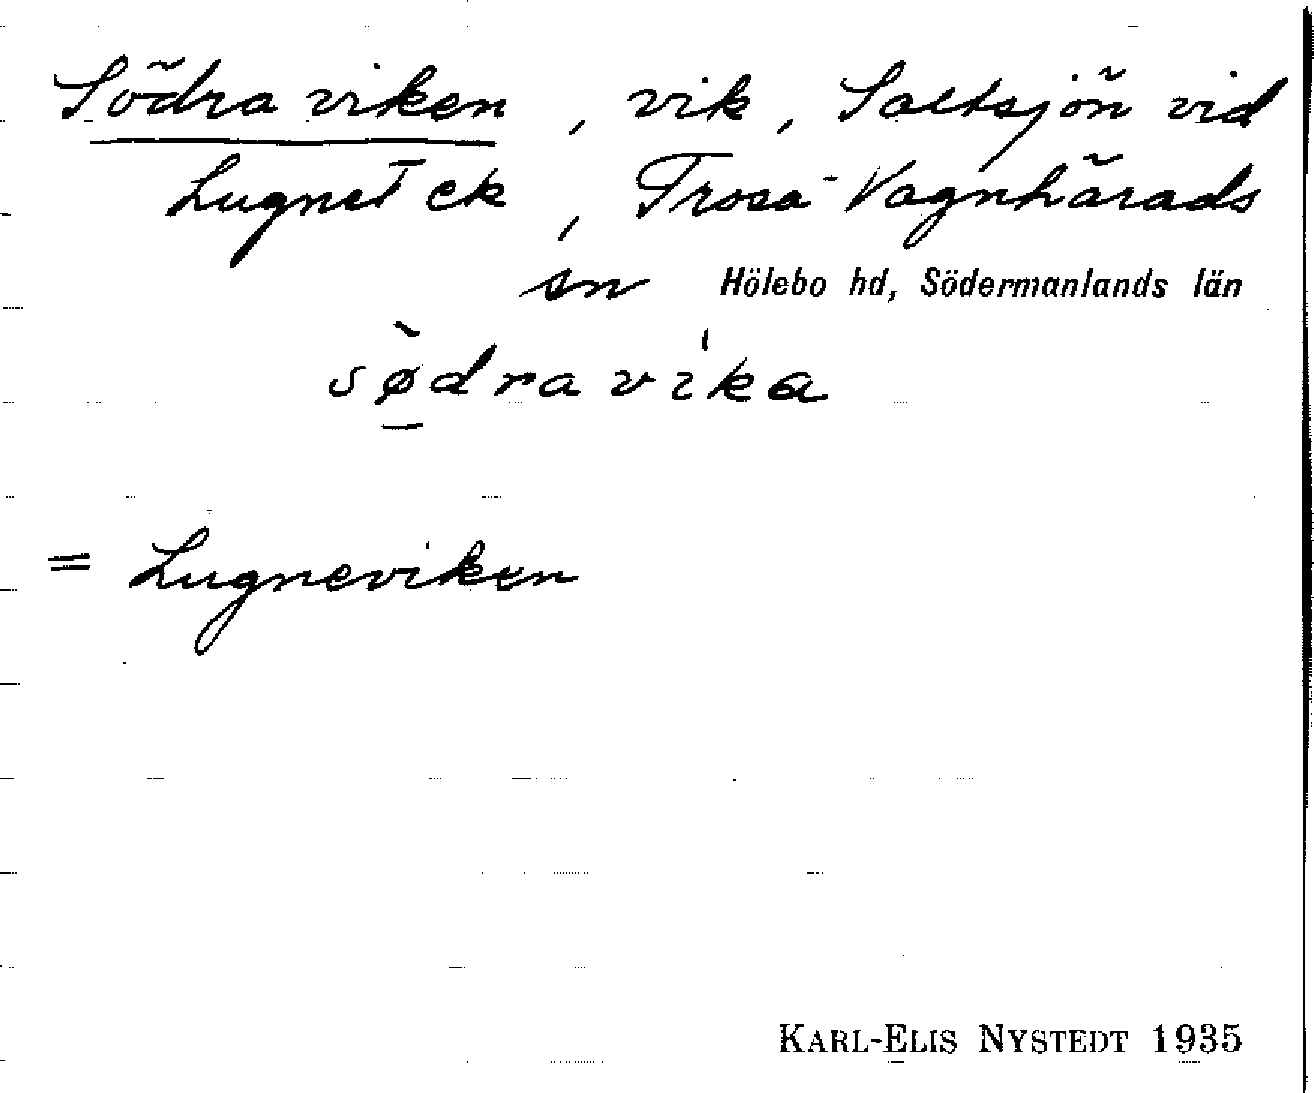 Södra viken, vik, Saltsjön vid
Lugnet ek, Trosa-Vagnhärads
sn Hölebo hd, Södermanlands län
sø̠̀dra vi'ka
= Lugneviken
KARL-ELIS NYSTEDT 1935